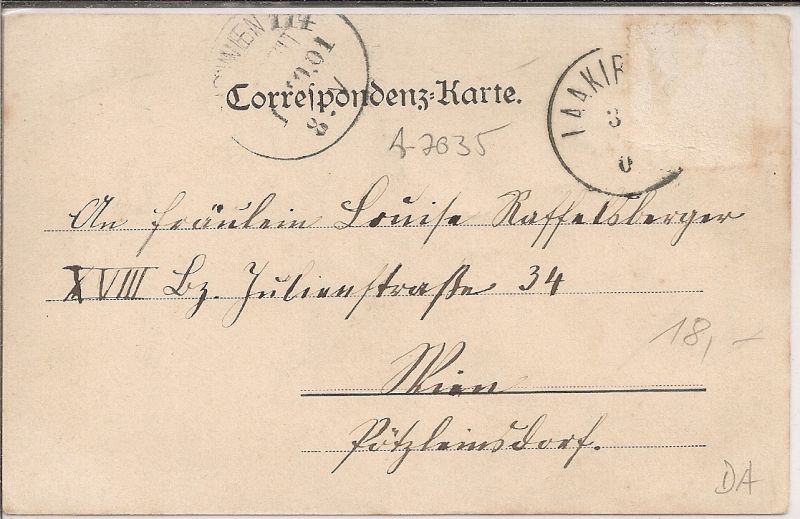 WIEN
114
8.7.01
Correspondenz-Karte.
LAAKIR
3
0
A 7035
An Fräulein Louise Raffelsberger
XVIII Bz. Julienstraße 34
18,-
Wien
Pötzleinsdorf.
DA